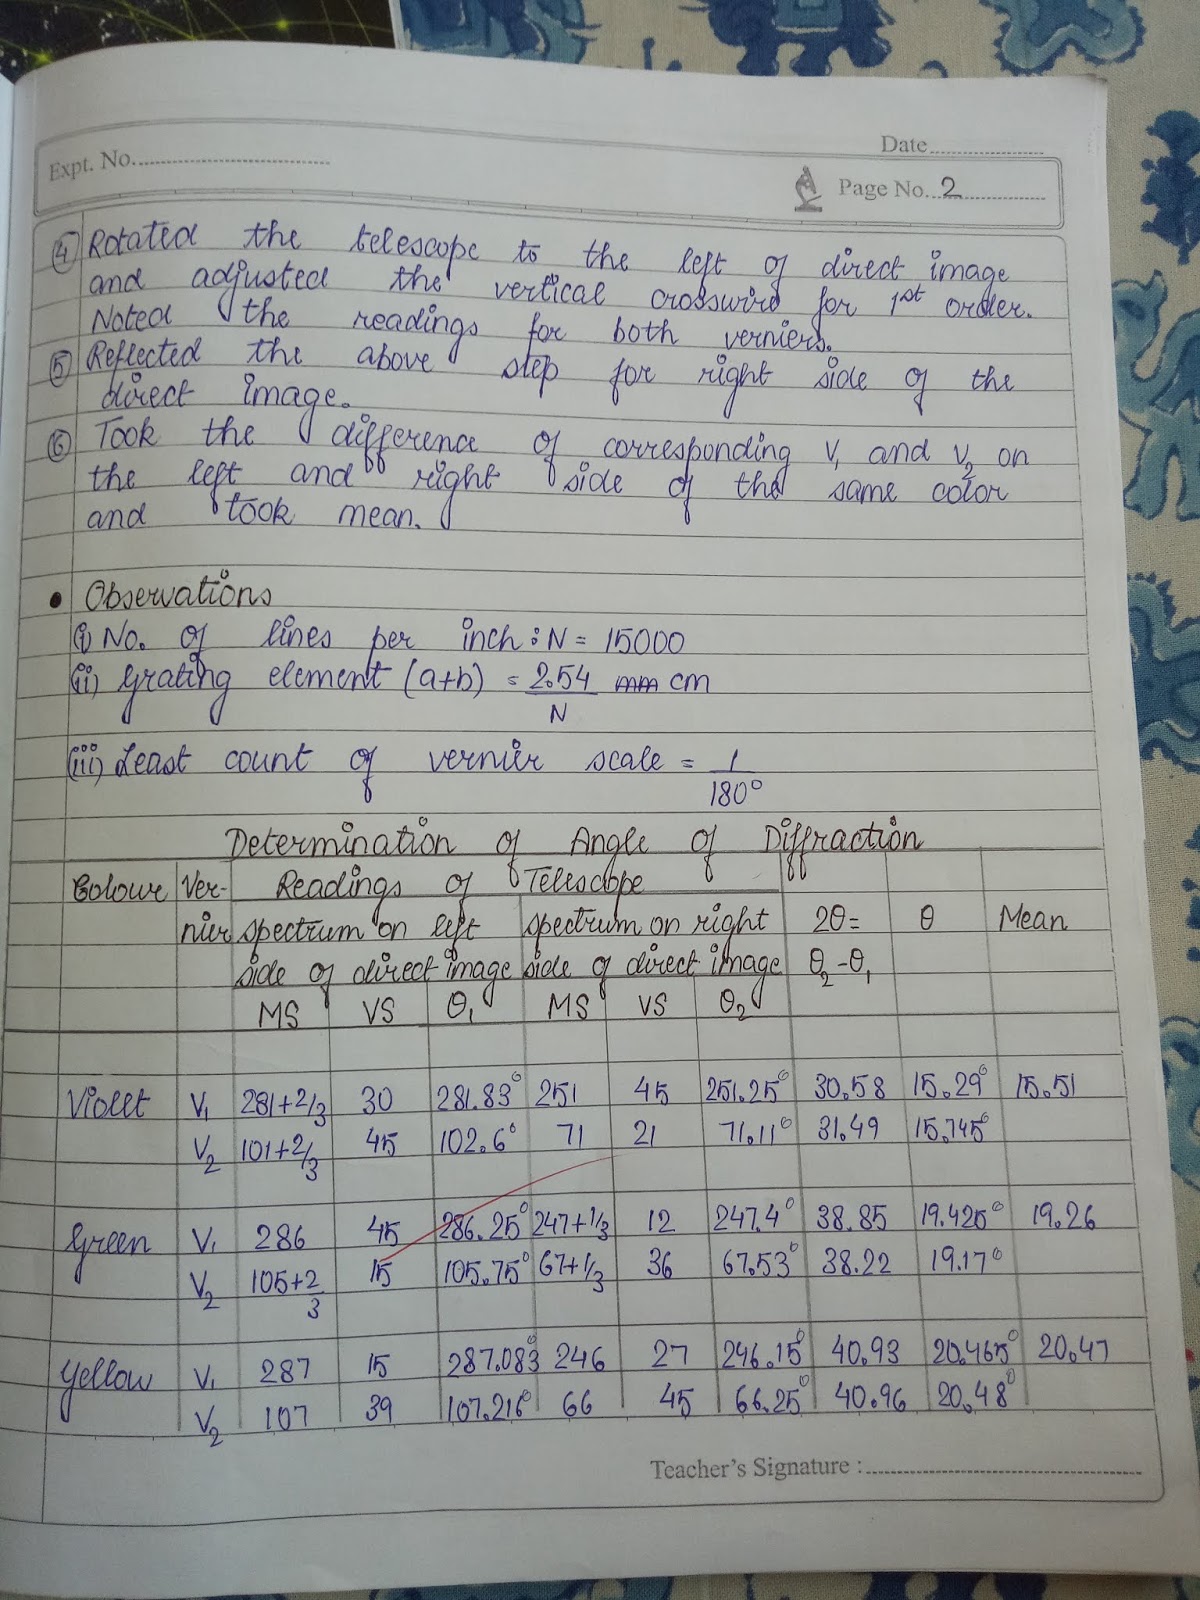 Date
Expt. No.
Page No. 2
④ Rotated the telescope to the left of direct image
and adjusted the vertical crosswire for 1st order.
Noted the readings for both verniers.
⑤ Reflected the above step for right side of the
direct image.
⑥ Took the difference of corresponding V₁ and V₂ on
the left and right side of the same color
and took mean.
• Observations
(i) No. of lines per inch : N = 15000
(ii) Grating element (a+b) = 2.54/N cm
(iii) Least count of vernier scale = 1/180°
Determination of Angle of Diffraction
Colour Ver- Readings of Telescope
nier spectrum on left spectrum on right 2θ= θ Mean
side of direct image side of direct image θ₂-θ₁
MS VS θ₁ MS VS θ₂
Violet V₁ 281+2/3 30 281.83° 251 45 251.25° 30.58 15.29° 15.51
V₂ 101+2/3 45 102.6° 71 21 71.11° 31.49 15.745°
Green V₁ 286 45 286.25° 247+1/3 12 247.4° 38.85 19.425° 19.26
V₂ 105+2/3 15 105.75° 67+1/3 36 67.53° 38.22 19.17°
Yellow V₁ 287 15 287.083° 246 27 246.15° 40.93 20.465° 20.47
V₂ 107 39 107.216° 66 45 66.25° 40.96 20.48°
Teacher's Signature :